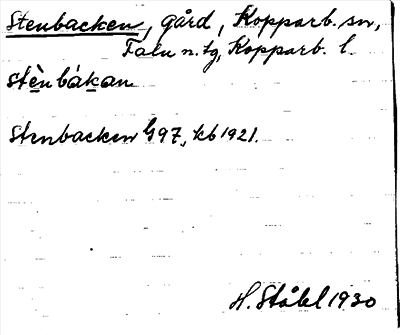 Stenbacken, gård, Kopparb. sn,
Falu n. tg, Kopparb. l.
stènbákan
Stenbacken G97, kb 1921.
H. Ståhl 1930